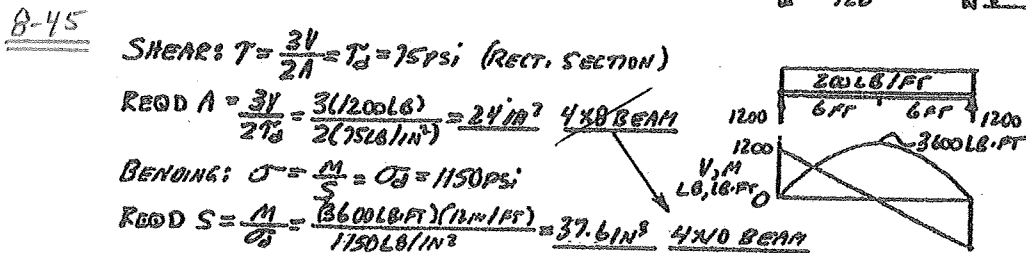 8-45
SHEAR: τ = 3V/2A = τd = 75 psi (RECT. SECTION)
REQD A = 3V/2τd = 3(1200LB)/2(75LB/IN²) = 24 in² 4X8 BEAM
BENDING: σ = M/S = σd = 1150 psi
REQD S = M/σd = (3600LB·FT)(12IN/FT)/1150LB/IN² = 37.6 IN³ 4X10 BEAM
200 LB/FT
6 FT 6 FT
1200 1200
1200 3600 LB·FT
V, M
LB, LB·FT 0